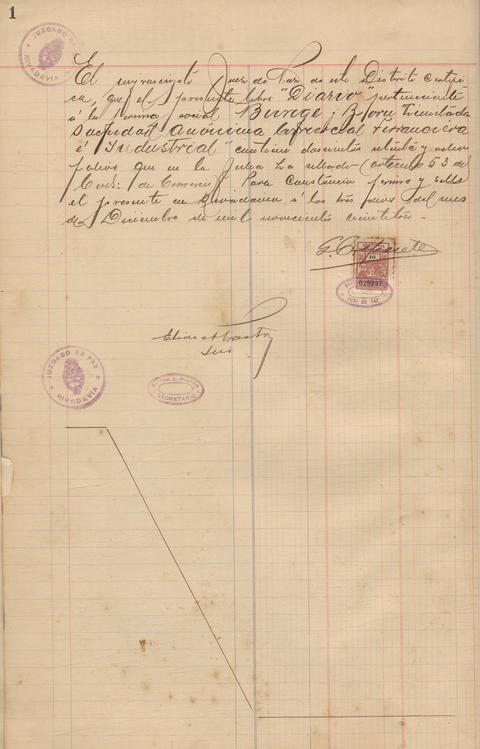 1
JUZGADO DE PAZ
RIVADAVIA
El infrascripto Juez de Paz de este Distrito certifi-
ca, que el presente libro "Diario" perteneciente
á la firma social Bunge y Born Limitada
Sociedad Anónima Comercial Financiera
é Industrial" contiene doscientos ochenta y
folios que en la fecha ha sellado (artículo 53 del
Cod: de Comercio). Para constancia firmo y sello
el presente en Rivadavia á los tres dias del mes
de Diciembre de mil novecientos veintitres.-
G.
10
025037
JUEZ DE PAZ
JUZGADO DE PAZ
RIVADAVIA
SECRETARIO